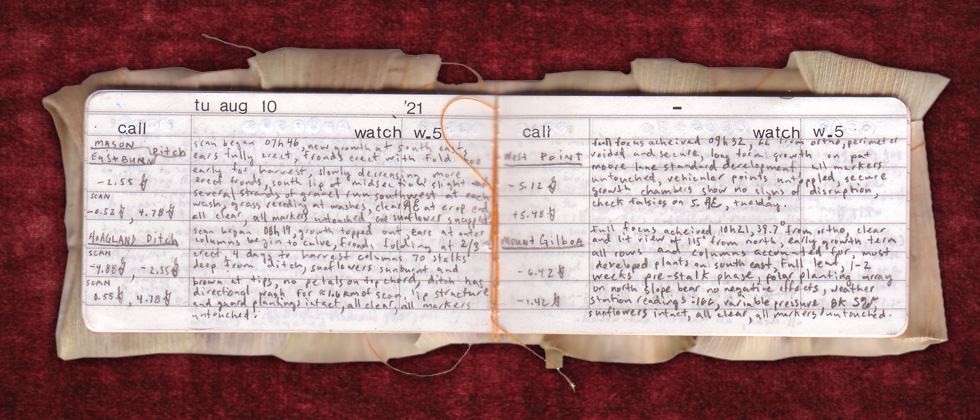 tu aug 10 '21
call watch w.5
MASON
EASTBURN Ditch
-2.55
SCAN
-0.52, 4.78
HOAGLAND Ditch
-4.88, -2.55
SCAN
0.55, 4.78
scan began 07h46, new growth at south ears,
ears fully erect, fronds erect with fold too
early for harvest, slowly decreasing, more
erect fronds, south lip of midsection slight
several straight gravel from southwest at each
wash, grass reeding at washes, clear at crop end
all clear, all markers untouched, one sunflower snapped
scan began 08h19, growth topped out, ears at outer
columns begin to calve, fronds folding at 2/3
erect, 4 days to harvest columns 70 stalks
deep from ditch, sunflowers sunburnt and
brown at tips, no petals on top chords, ditch has
directional weigh for scan, lip structure
and guard plantings intact, all clear, all markers
untouched.
-
call watch w.5
WEST POINT
-5.12
+5.48
MOUNT Gilboa
-6.42
-1.42
full focus acheived 09h32, from ortho, perimeter
voided and secure, long form growth on pat
more lane standard development, all markers
untouched, vehicular points untoppled, secure
growth chambers show no signs of disruption,
check falsies on 5. , tuesday.
Full focus acheived 10h21, 39.7 from ortho, clear
and lit view of 115° from north, early growth term
all rows and columns accounted for, most
developed plants on south east full lead, 1-2
weeks pre-stalk phase, polar planting array
on north slope bear no negative effects, weather
station readings , variable pressure
sunflowers intact, all clear, all markers untouched.